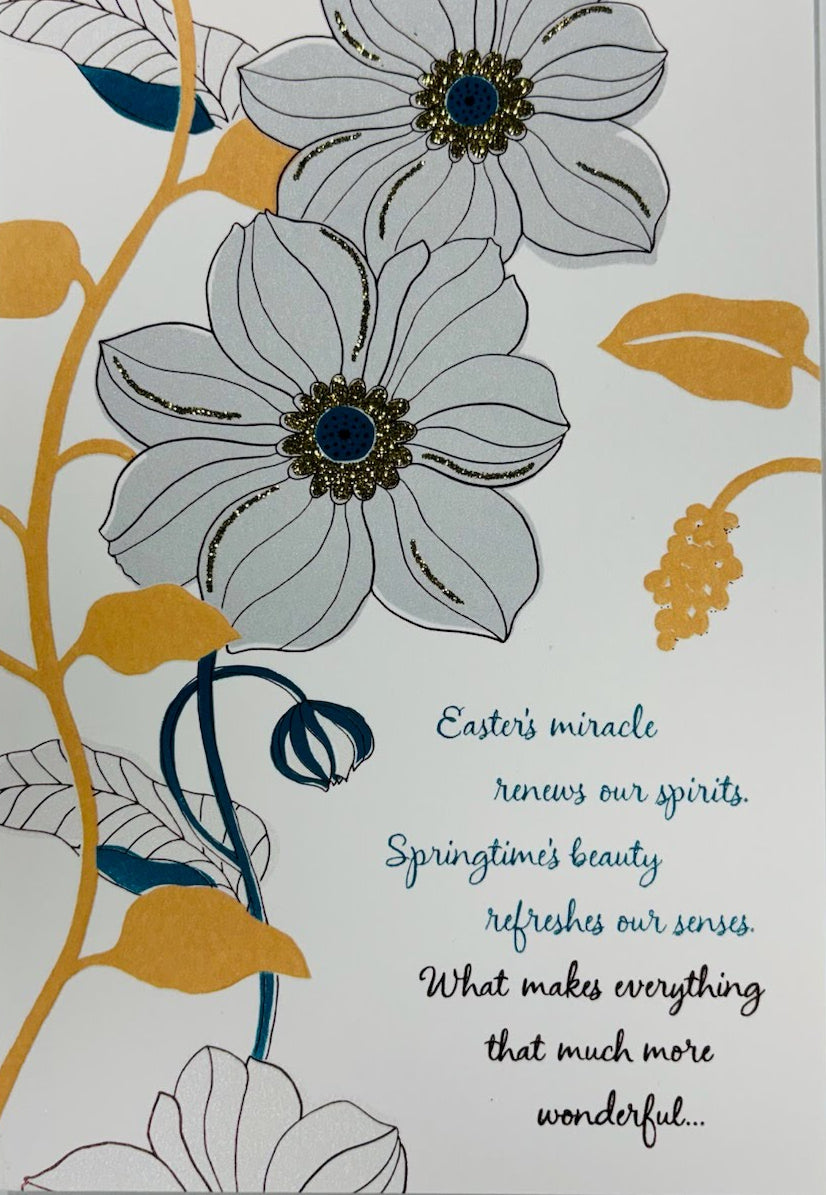 Easter's miracle
renews our spirits.
Springtime's beauty
refreshes our senses.
What makes everything
that much more
wonderful...